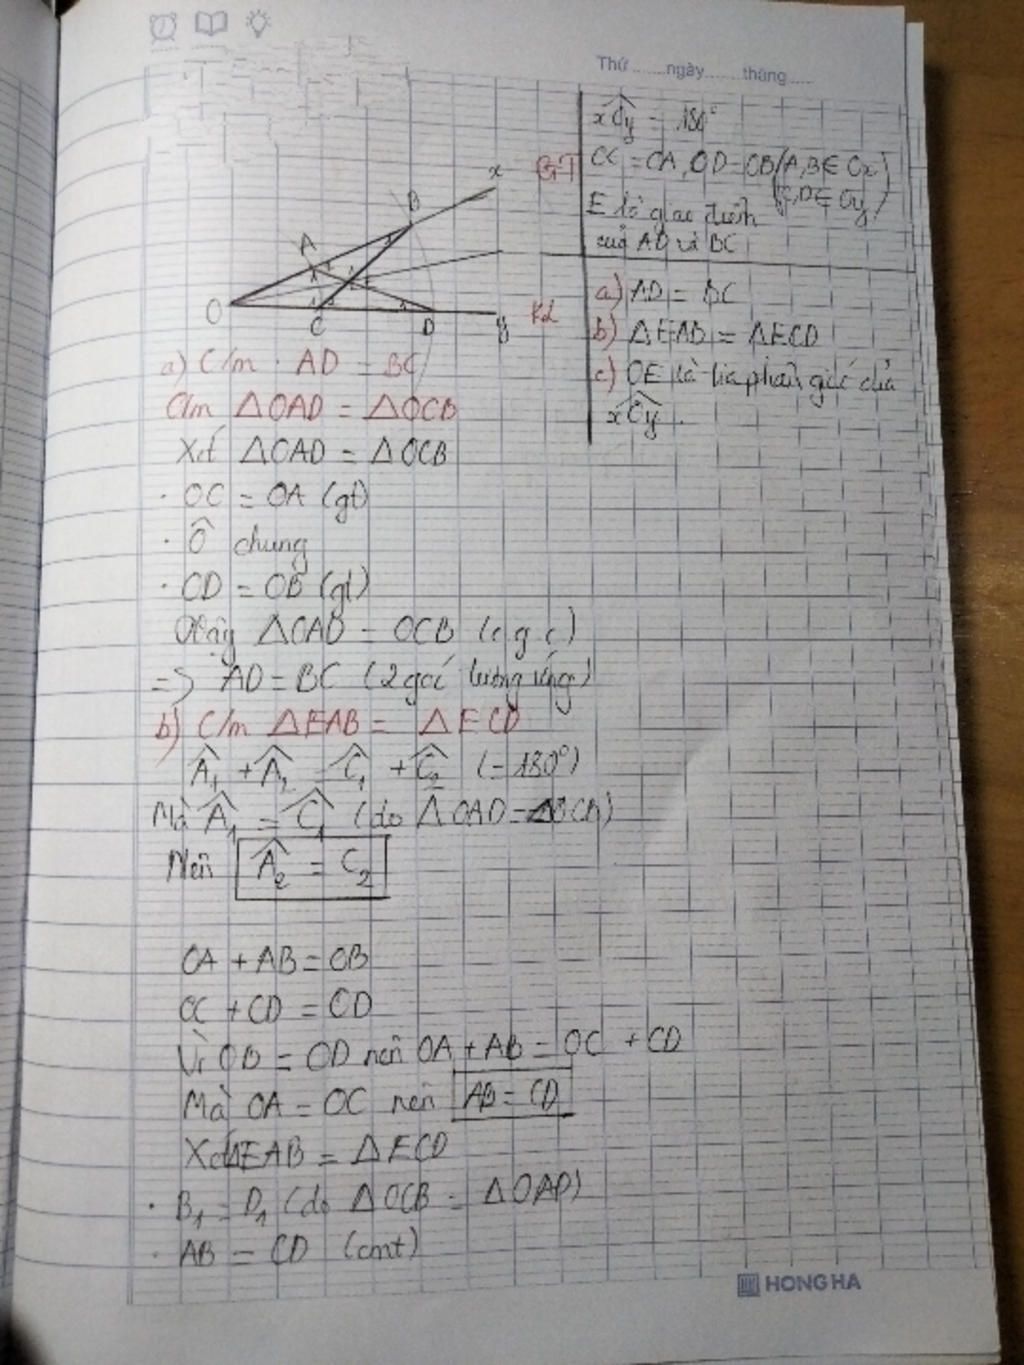 Thứ ........ ngày ........ tháng .....
xOy = 180°
GT OC = OA, OD = OB (A, B ∈ Ox)
(C, D ∈ Oy)
E là giao điểm
của AD và BC
x
B
A
O
C
D
y
KL
a) AD = BC
b) ΔEAB = ΔECD
c) OE là tia phân giác của
xOy.
a) C/m : AD = BC
C/m ΔOAD = ΔOCB
Xét ΔOAD = ΔOCB
· OC = OA (gt)
· Ô chung
· OD = OB (gt)
Vậy ΔOAD = OCB (c g c)
=> AD = BC (2 góc tương ứng)
b) C/m ΔEAB = ΔECD
A1 + A2 = C1 + C2 (= 180°)
Mà A1 = C1 (do ΔOAD = ΔOCB)
Nên A2 = C2
OA + AB = OB
OC + CD = OD
Vì OB = OD nên OA + AB = OC + CD
Mà OA = OC nên AB = CD
Xét ΔEAB = ΔECD
· B1 = D1 (do ΔOCB = ΔOAD)
· AB = CD (cmt)
HONG HA